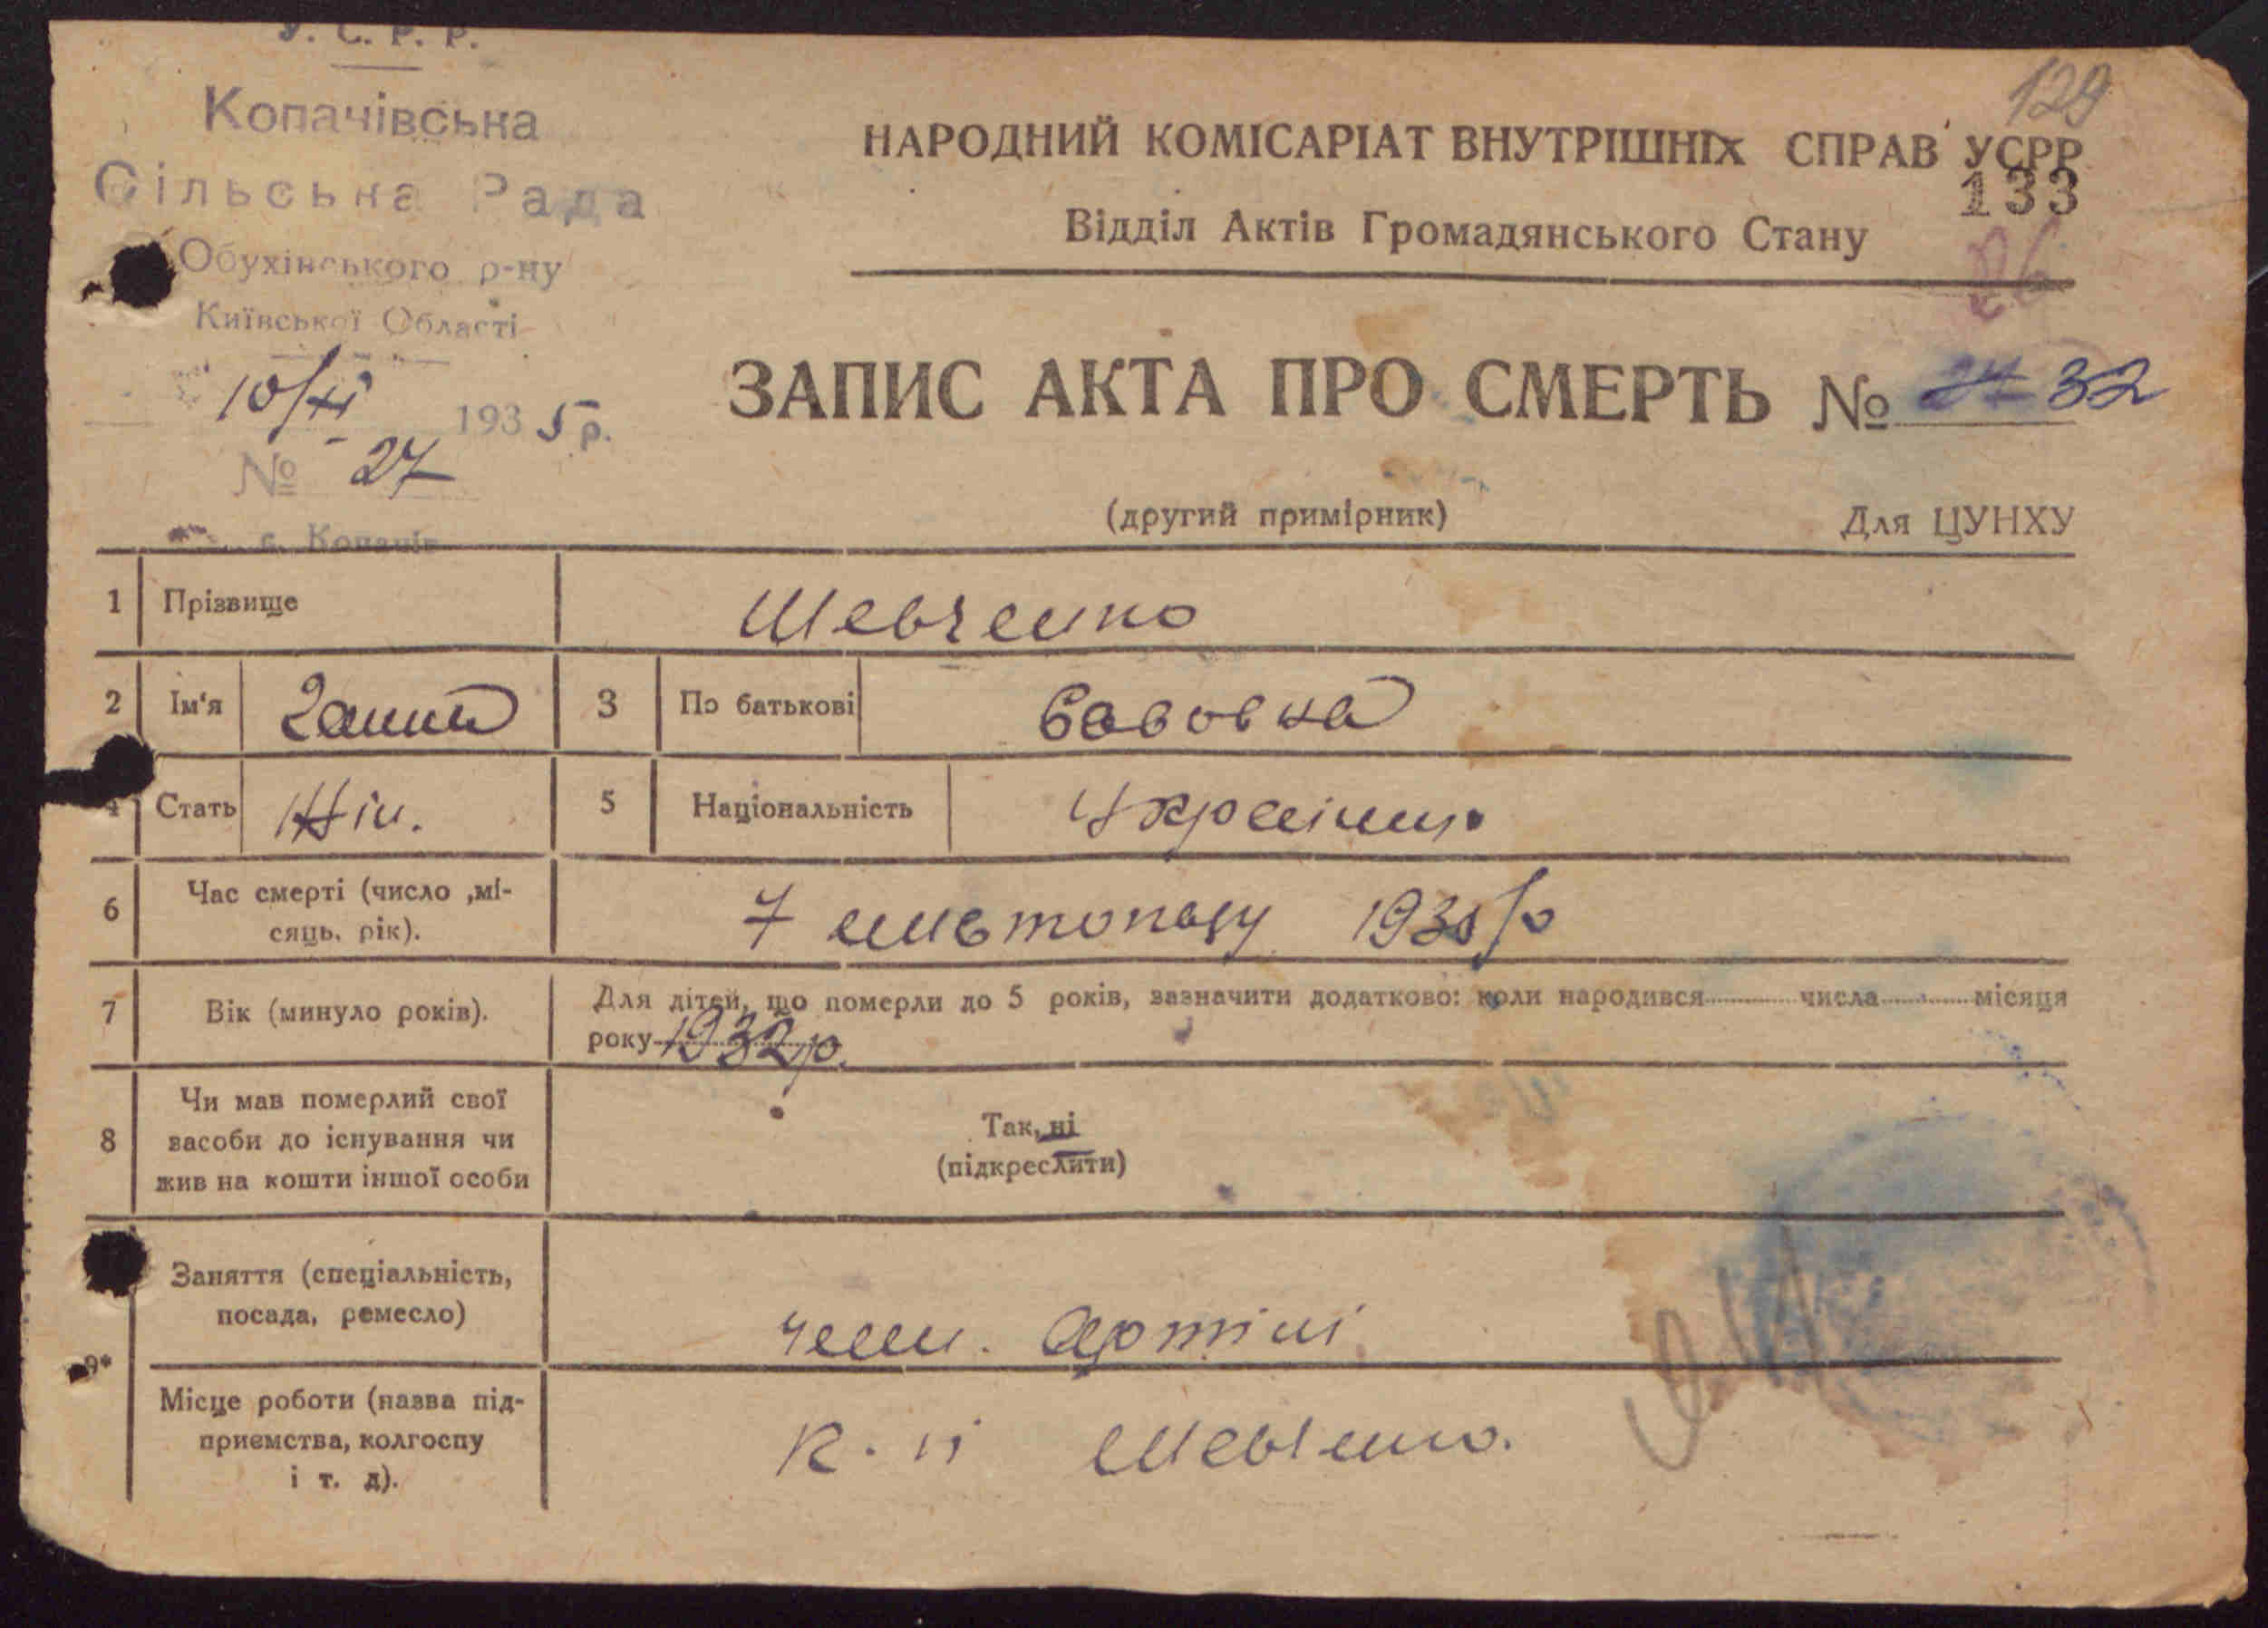 У. С. Р. Р.
Копачівська
Сільська Рада
Обухівського р-ну
Київської Області
10/XI 1935 р.
№ 27
с. Копачів
129
НАРОДНИЙ КОМІСАРІАТ ВНУТРІШНІХ СПРАВ УСРР
133
Відділ Актів Громадянського Стану
26
ЗАПИС АКТА ПРО СМЕРТЬ № 27 32
(другий примірник) Для ЦУНХУ
1 Прізвище Шевченко
2 Ім'я Ганна 3 По батькові Савовна
4 Стать Жін. 5 Національність Україн.
6 Час смерті (число ,мі-
сяць, рік). 7 листопаду 1935 р
7 Вік (минуло років). Для дітей, що померли до 5 років, зазначити додатково: коли народився числа місяця
року 1932 р.
8 Чи мав померлий свої
засоби до існування чи
жив на кошти іншої особи
Так, ні
(підкреслити)
9* Заняття (спеціальність,
посада, ремесло)
член. Артілі
Місце роботи (назва під-
приємства, колгоспу
і т. д).
Шевченко.